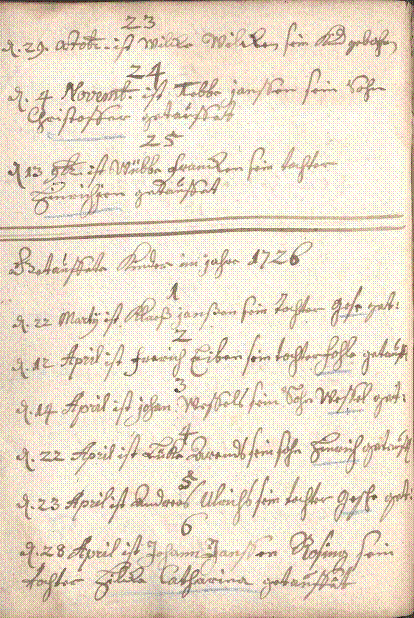 23
d. 29. octobr. ist Wilcke Wilcken sein Kd gebohren
24
d. 4 Novemb. ist Tebbe Janssen sein Sohn
Christoffer getauffet
25
d 13 9br. ist Wübbe Francken sein tochter
getauffet
Getauffete Kinder im jahre 1726
1
d. 22 Martij ist Klaaß janßen sein Tochter Gese get:
2
d. 12 April ist frerich Eiben sein tochter getauft
3
d. 14 April ist johan Wessels sein Sohn Wessel get:
4
d. 22 April ist Lüke Arends sein sohn Hinrich getauft
5
d. 23 April ist Andreas Ulrichs sein tochter Gesche get:
6
d. 28 April ist Johann Janssen Rosing sein
tochter Hilke Catharina getauffet